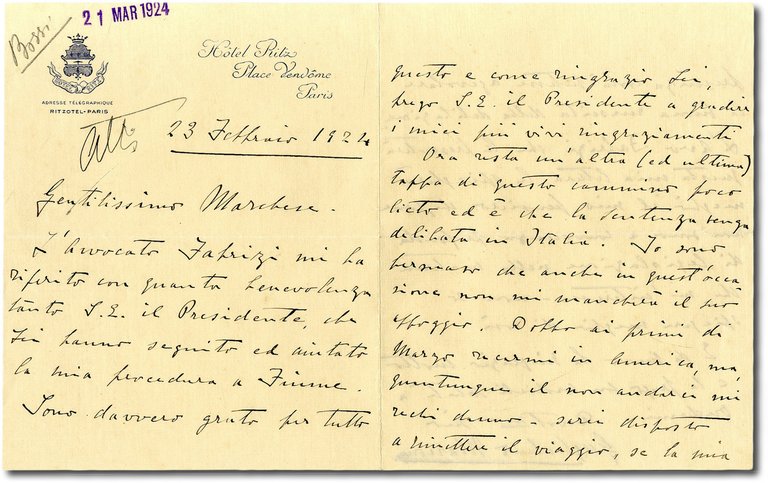 Bossi
21 MAR 1924
Hôtel Ritz
Place Vendôme
Paris
ADRESSE TÉLÉGRAPHIQUE
RITZOTEL-PARIS
Atti
23 Febbraio 1924
Gentilissimo Marchese.
L'avvocato Fabrizi mi ha
riferito con quanta benevolenza
tanto S.E. il Presidente, che
Lei hanno seguito ed aiutato
la mia procedura a Fiume.
Sono davvero grato per tutto
questo e come ringrazio Lei,
prego S.E. il Presidente a gradire
i miei più vivi ringraziamenti
Ora resta un'altra (ed ultima)
tappa di questo cammino poco
lieto ed è che la sentenza venga
delibata in Italia. Io sono
persuaso che anche in quest'occa
sione non mi mancherà il suo
appoggio. Dovrò ai primi di
Marzo recarmi in America, ma,
quantunque il non andarci mi
rechi danno - sarei disposto
a rimettere il viaggio, se la mia